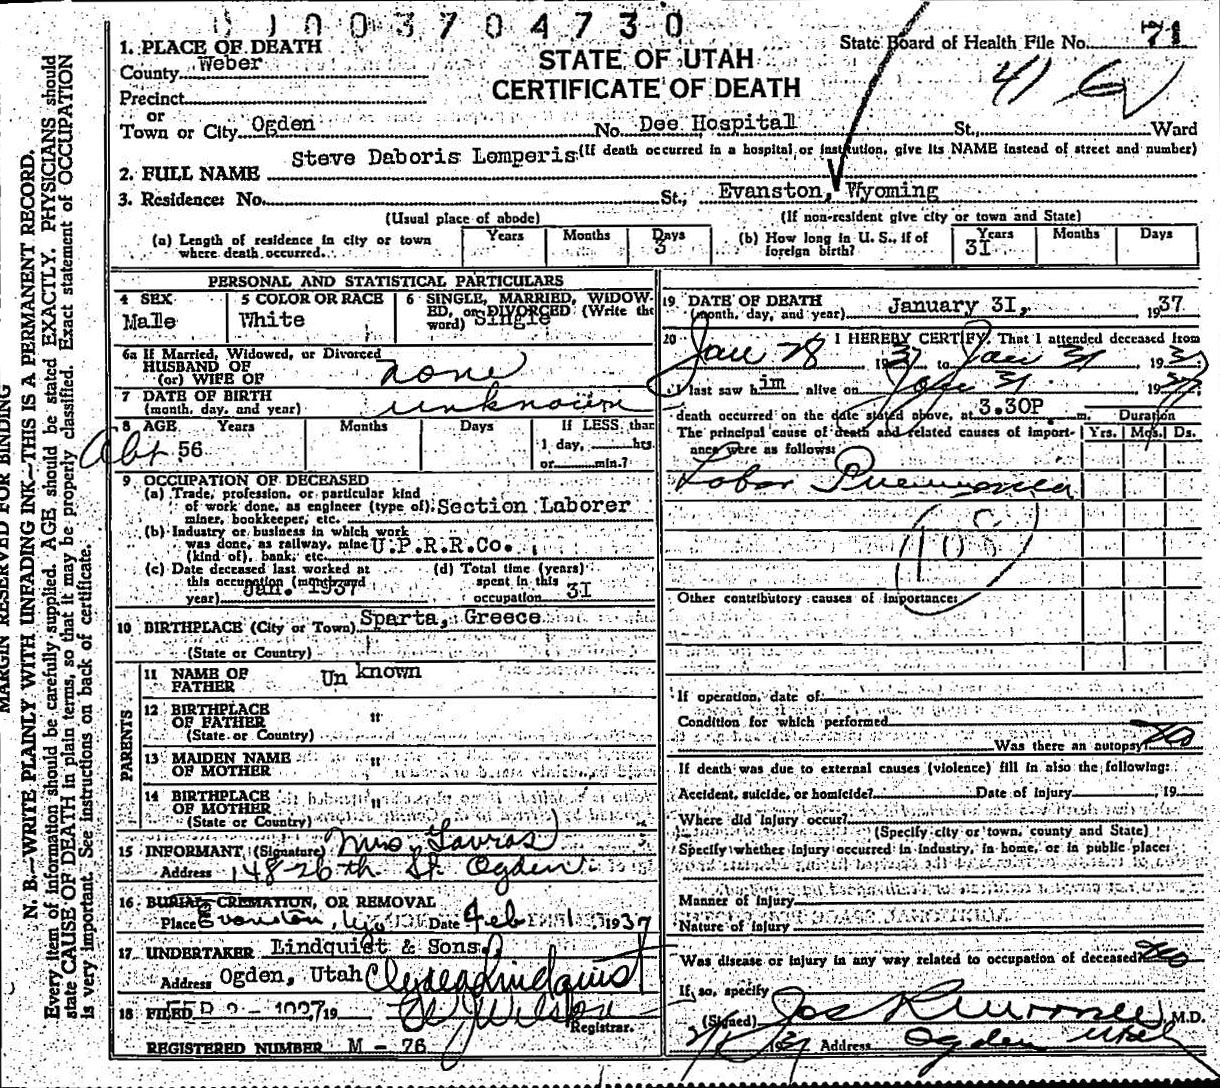 0 0 3 7 0 4 7 3 0
1. PLACE OF DEATH
County Weber
Precinct
or
Town or City Ogden
STATE OF UTAH
CERTIFICATE OF DEATH
State Board of Health File No. 71
41
No. Dee Hospital St., Ward
(If death occurred in a hospital or institution, give its NAME instead of street and number)
2. FULL NAME Steve Daboris Lemperis
3. Residence: No. St., Evanston, Wyoming
(Usual place of abode) (If non-resident give city or town and State)
(a) Length of residence in city or town where death occurred. Years Months Days 3
(b) How long in U. S., if of foreign birth? Years 31 Months Days
PERSONAL AND STATISTICAL PARTICULARS
4 SEX Male
5 COLOR OR RACE White
6 SINGLE, MARRIED, WIDOWED, or DIVORCED (Write the word) Single
6a If Married, Widowed, or Divorced
HUSBAND OF
(or) WIFE OF none
7 DATE OF BIRTH
(month, day, and year) unknown
8 AGE Years Months Days If LESS than
Abt 56 1 day, hrs.
or min.?
9 OCCUPATION OF DECEASED
(a) Trade, profession, or particular kind
of work done, as engineer (type of), Section Laborer
miner, bookkeeper, etc.
(b) Industry or business in which work
was done, as railway, mine U.P.R.R.Co.
(kind of), bank, etc.
(c) Date deceased last worked at
this occupation (month and
year) Jan. 1937
(d) Total time (years)
spent in this
occupation 31
10 BIRTHPLACE (City or Town) Sparta, Greece
(State or Country)
PARENTS
11 NAME OF
FATHER Unknown
12 BIRTHPLACE
OF FATHER "
(State or Country)
13 MAIDEN NAME
OF MOTHER "
14 BIRTHPLACE
OF MOTHER "
(State or Country)
15 INFORMANT (Signature) Mrs Gavras
Address 148-26th St. Ogden.
16 BURIAL, CREMATION, OR REMOVAL
Place Evanston, Wyo Date Feb 1 1937
17 UNDERTAKER Lindquist & Sons.
Address Ogden, Utah Clyde Lindquist
18 FILED FEB 2 - 1937 19 Wilson
Registrar.
REGISTERED NUMBER M - 76
19 DATE OF DEATH
(month, day, and year) January 31, 1937
20 I HEREBY CERTIFY, That I attended deceased from
Jan 28 1937 to Jan 31, 1937
I last saw him alive on Jan 31 1937
death occurred on the date stated above, at 3.30P m. Duration
The principal cause of death and related causes of importance were as follows: Yrs. Mos. Ds.
Lobar Pneumonia
108
Other contributory causes of importance:
If operation, date of
Condition for which performed
Was there an autopsy? No
If death was due to external causes (violence) fill in also the following:
Accident, suicide, or homicide? Date of injury , 19
Where did injury occur?
(Specify city or town, county and State)
Specify whether injury occurred in industry, in home, or in public place:
Manner of injury
Nature of injury
Was disease or injury in any way related to occupation of deceased? No
If so, specify
(Signed) Jos R Morrell M.D.
2/1 1937 Address Ogden Utah
MARGIN RESERVED FOR BINDING
N. B.—WRITE PLAINLY WITH UNFADING INK—THIS IS A PERMANENT RECORD.
Every item of information should be carefully supplied. AGE should be stated EXACTLY. PHYSICIANS should
state CAUSE OF DEATH in plain terms, so that it may be properly classified. Exact statement of OCCUPATION
is very important. See instructions on back of certificate.